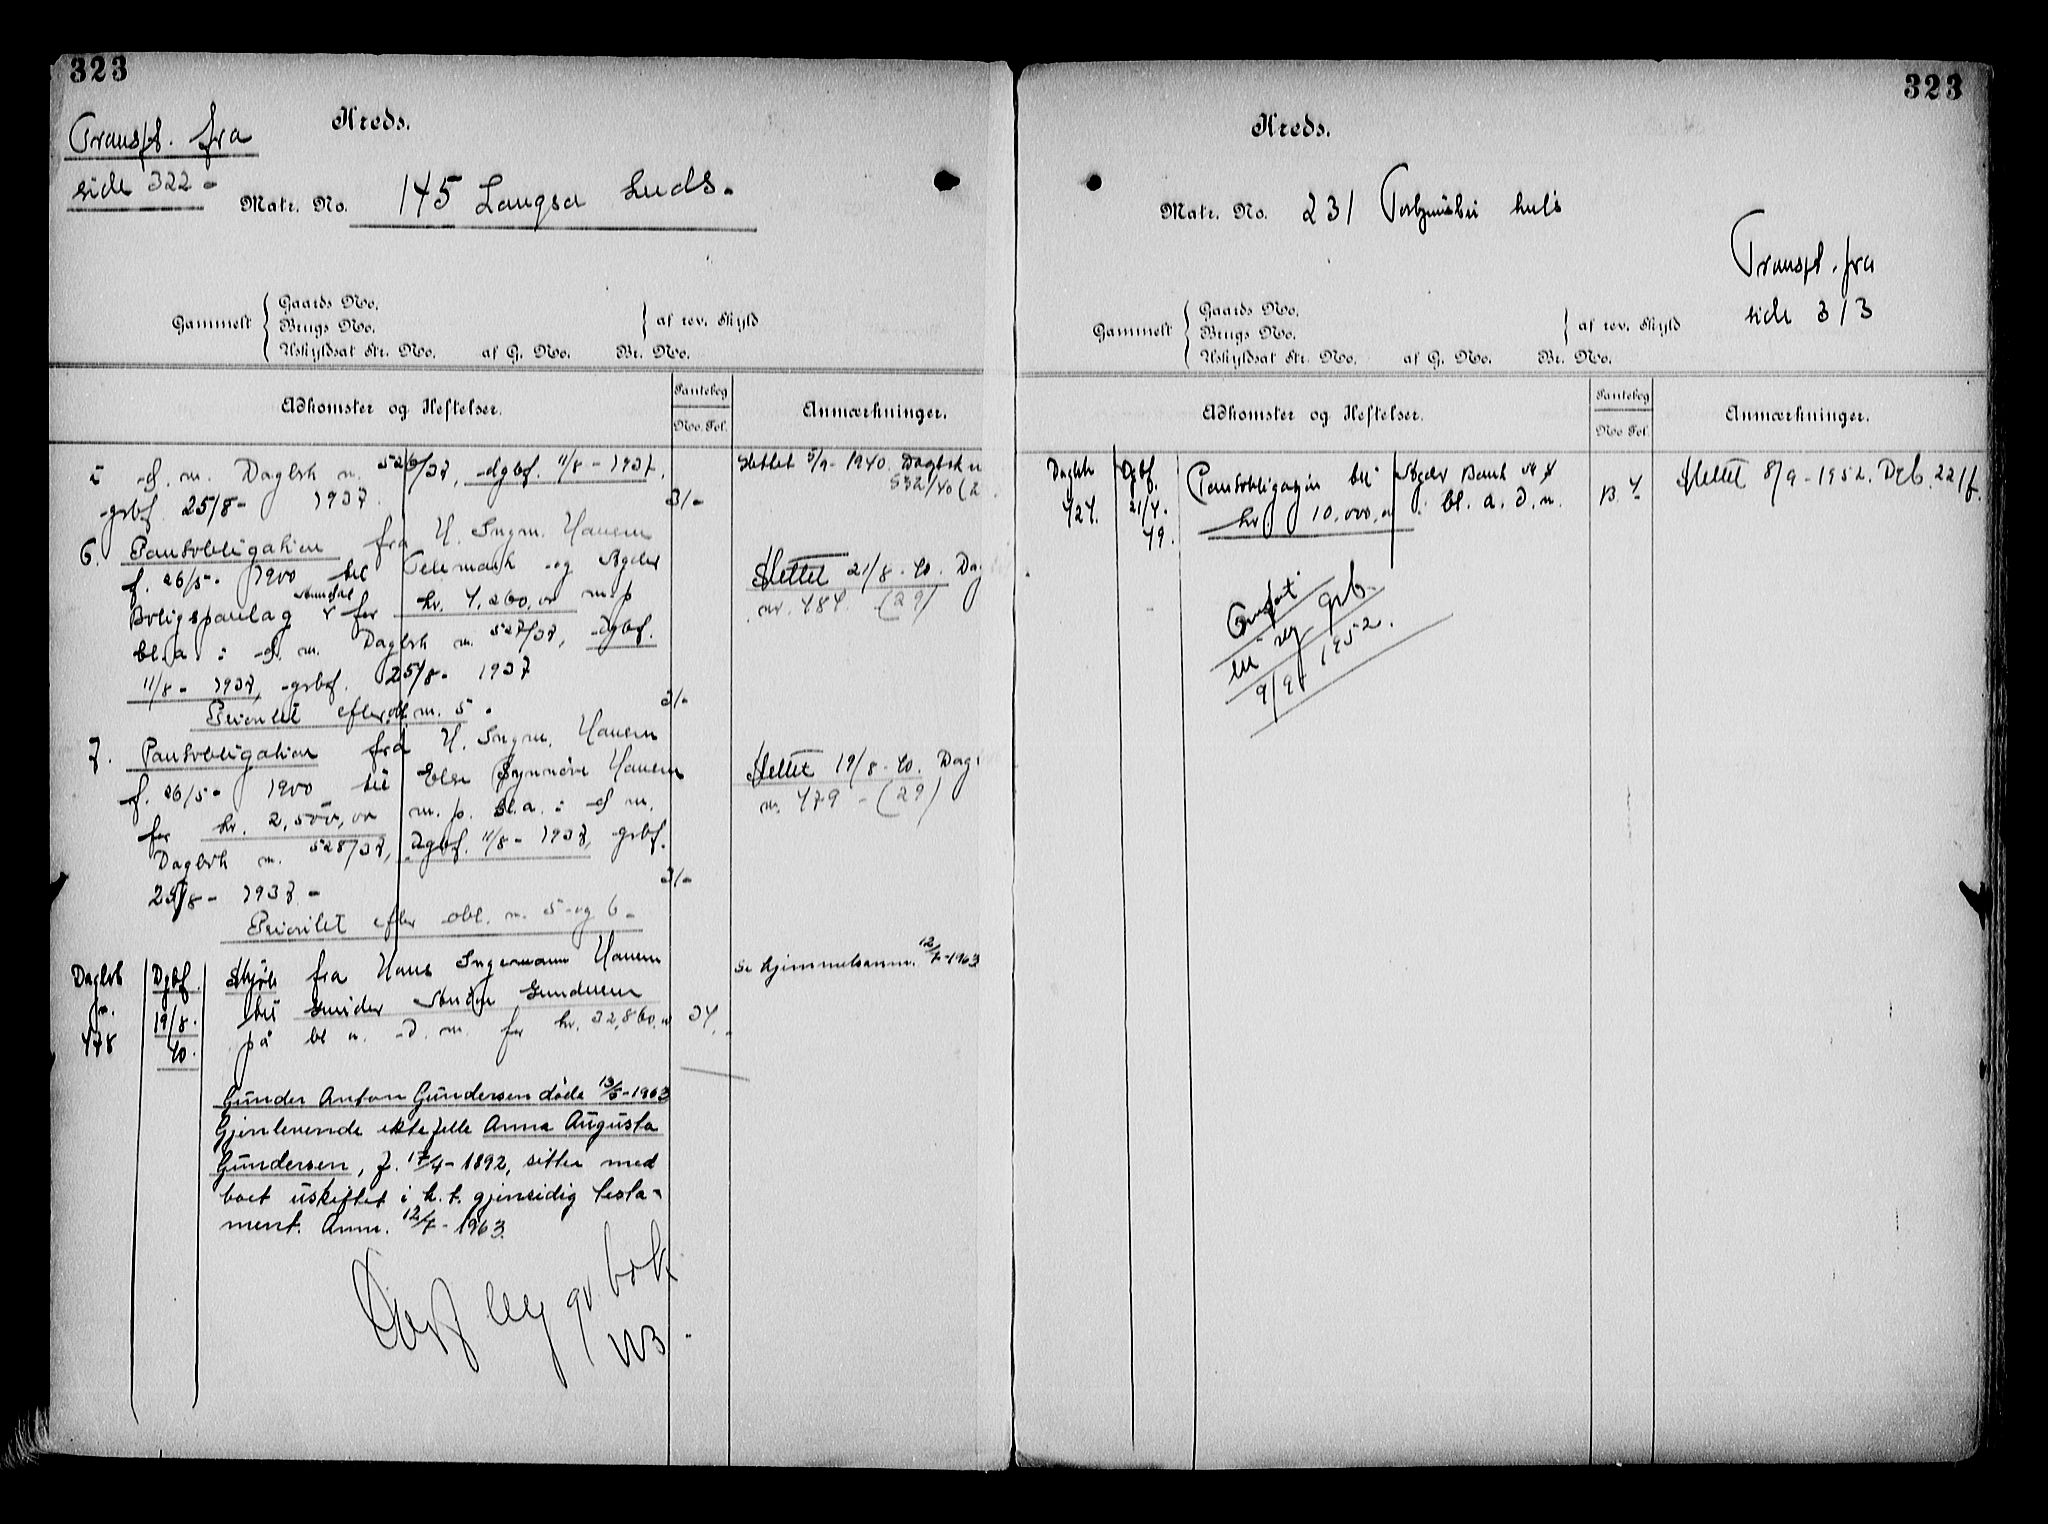 323
Kreds.
Transp. fra
side 322 -
Matr. No. 145 Langsæ
Gaards No.
Gammelt Brugs No. af rev. Skyld
Uskyldsat Str. No. af G. No. Br. No.
Adkomster og Heftelser. Pantebog No. Fol. Anmærkninger.
d. m. Dagbok n. 526/37, dgbf. 11/8 - 1937. Slettet 5/9 - 1940. Dagbok n
grbf. 25/8 - 1937. 31 - 532/40 (2
6. Pantobligation fra H. Ingm. Hansen
f. 26/5 - 1900 til Telemark og Agder
Boligpantelag for kr. 4,260,00 m. p. Slettet 21/8 - 40. Dag
nr. 484. (29)
bl. a. i d. m. Dagbok nr. 527/37, dgbf.
11/8 - 1937, grbf. 25/8 - 1937
Prioritet efter obl. nr. 5. 31 -
7. Pantobligation fra H. Ingm. Hansen
f. 26/5 - 1900 til Else Synnøve Hansen Slettet 19/8 - 40. Dag
for kr. 2,500,00 m. p. bl. a. i d. m. nr. 479 - (29)
Dagbok nr. 528/37, Dgbf. 11/8 - 1937, grbf.
25/8 - 1937 - 31 -
Prioritet efter obl. nr. 5 og 6 -
Dagbok n. 478 Dgbf. 19/8. 40. Skjøte fra Hans Ingemann Hansen Se hjemmelsanm. 12/7 - 1963
til Gunder Anton Gundersen
på bl. a. d. m. for kr. 32,860,00 34. -
Gunder Anton Gundersen døde 13/5 - 1963
Gjenlevende ektefelle Anna Augusta
Gundersen, f. 17/4 - 1892, sitter med
boet uskiftet i h. t. gjensidig testa-
ment. Anm. 12/7 - 1963.
Overf ny gr bok
323
Kreds.
Matr. No. 231
Transp. fra
side 313
Gaards No.
Gammelt Brugs No. af rev. Skyld
Uskyldsat Str. No. af G. No. Br. No.
Adkomster og Heftelser. Pantebog No. Fol. Anmærkninger.
Dagbok 427. Dgbf. 21/4 - 49. Pantobligasjon til Agder Bank A/S B 4 Slettet 8/9 - 1952. Dgb. 221f.
kr. 10.000,00 bl. a. d. m.
Overført
til ny grb.
9/9 - 1952.